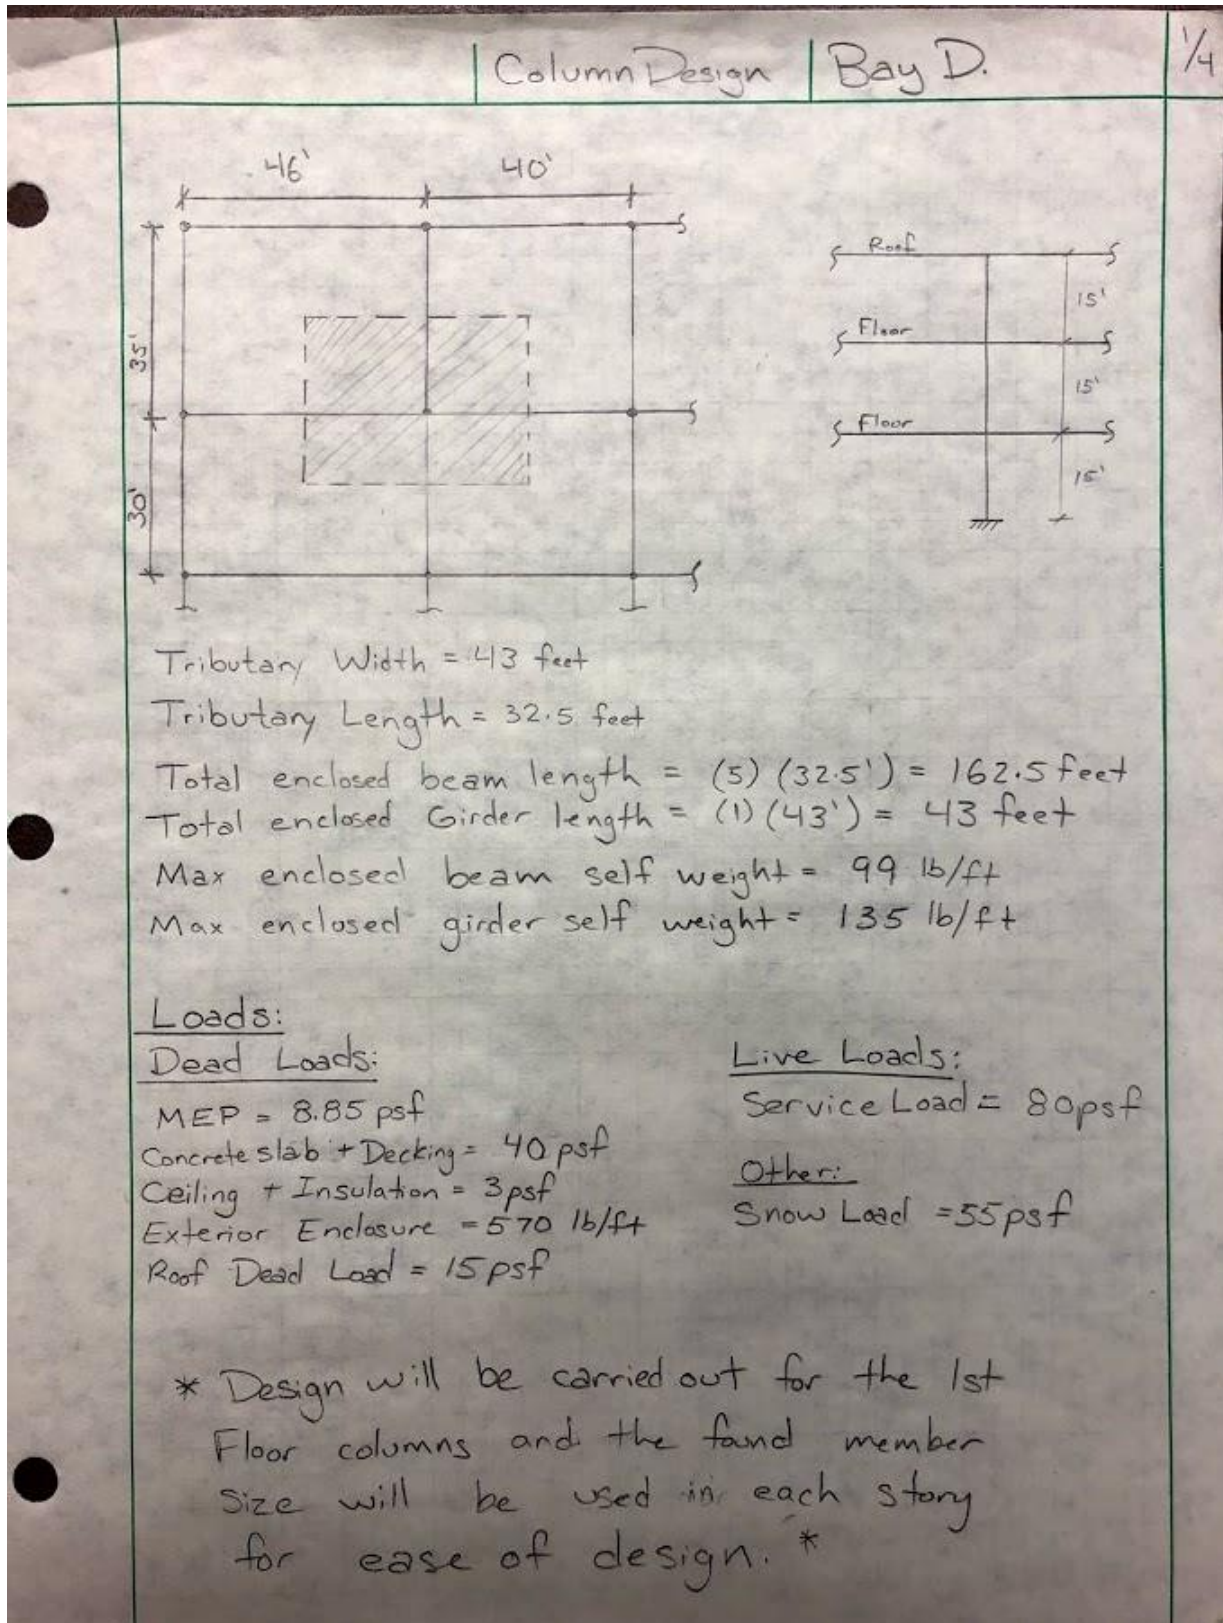 Column Design
Bay D.
1/4
46'
40'
35'
30'
Roof
15'
Floor
15'
Floor
15'
Tributary Width = 43 feet
Tributary Length = 32.5 feet
Total enclosed beam length = (5) (32.5') = 162.5 feet
Total enclosed Girder length = (1) (43') = 43 feet
Max enclosed beam self weight = 99 lb/ft
Max enclosed girder self weight = 135 lb/ft
Loads:
Dead Loads:
MEP = 8.85 psf
Concrete slab + Decking = 40 psf
Ceiling + Insulation = 3psf
Exterior Enclosure = 570 lb/ft
Roof Dead Load = 15psf
Live Loads:
Service Load = 80psf
Other:
Snow Load = 55psf
* Design will be carried out for the 1st
Floor columns and the found member
Size will be used in each story
for ease of design. *